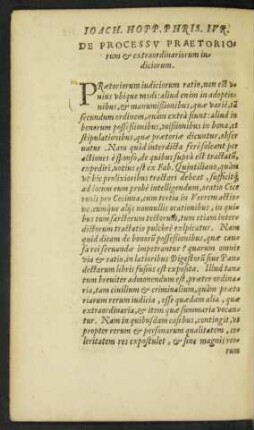 IOACH. HOPP. PHRIS. IVR.
DE PROCESSV PRAETORIO
rum & extraordinariorum iu-
diciorum.
PRætoriorum iudiciorum ratio, non est v-
nius vbique modi: aliud enim in adoptio-
nibus, & manumissionibus, quæ variè, tã
secundum ordinem, quàm extrà fiunt: aliud in
bonorum possessionibus, missionibus in bona, et
stipulationibus, quæ prætoriæ dicuntur, obser-
uatur. Nam quid interdicta ferè soleant per
actiones
expediri, notius est ex Fab. Quintiliano, quàm
vt his prolixioribus tractari debeat, sufficitq́;
ad locum eum probè intelligendum, oratio Cice
ronis pro Cecinna, cum tertia in Verrem actio-
ne, eumque alijs nonnullis orationibus, in qui-
bus cum sarctorum tectorum, tum etiam inter-
dictorum tractatio pulchrè explicatur. Nam
quid dicam de bonorũ possessionibus, quæ cau-
sa rei seruandæ impetrantur? quarum omnis
via & ratio, in latioribus Digestorũ siue Pan-
dectarum libris fusius est exposita. Illud tan-
tum breuiter admonendum est, præter ordina-
ria, tam ciuilium & criminalium, quàm præto-
riarum rerum iudicia, esse quædam alia, quæ
extraordinaria, & item quæ summaria vocan-
tur. Nam in quibusdam casibus, contingit, vt
propter rerum & personarum qualitatem, ce-
leritatem res expostulet, & sine magnis rerum
rum